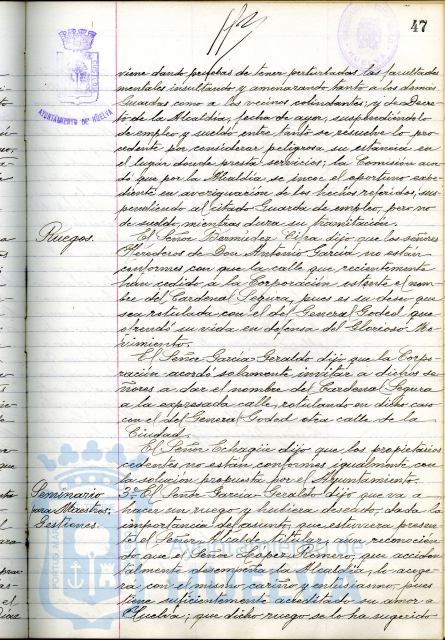 47
AYUNTAMIENTO DE HUELVA
viene dando pruebas de tener perturbadas las facultades
mentales insultando y amenazando tanto a los demas
Guardas como a los vecinos colindantes; y de Decre-
to de la Alcaldia, fecha de ayer, suspendiéndolo
de empleo y sueldo entre tanto se resuelve lo pro-
cedente por considerar peligrosa su estancia en
el lugar donde presta servicios; la Comisión acor-
dó que por la Alcaldia se incoe el oportuno expe-
diente en averiguación de los hechos referidos, sus-
pendiendo al citado Guarda de empleo, pero no
de sueldo, mientras dura su tramitación.
Ruegos.
El Señor Bermúdez Cifra dijo que los Señores
Herederos de Don Antonio Garcia no están
conformes con que la calle que recientemente
han cedido a la Corporación ostente el nom-
bre del Cardenal Segura, pues es su deseo que
sea rotulada con el del General Goded que
ofrendó su vida en defensa del Glorioso Mo-
vimiento.
El Señor Garcia Geraldo dijo que la Corpo-
ración acordó solamente invitar a dichos se-
ñores a dar el nombre del Cardenal Segura
a la expresada calle, rotulando en dicho caso
con el del General Goded otra calle de la
Ciudad.
El Señor Echagüe dijo que los propietarios
cedentes no están conformes igualmente con
la solución propuesta por el Ayuntamiento.
Seminario
para Maestros;
Gestiones.
5º El Señor Garcia Geraldo dijo que va a
hacer un ruego y hubiera deseado, dada la
importancia del asunto, que estuviera presen-
te el Señor Alcalde titular aun reconocien-
do que el Señor López Romero, que acciden-
talmente desempeña la Alcaldia, lo acoge-
rá con el mismo cariño y entusiasmo, pues
tiene suficientemente acreditado su amor a
Huelva; que dicho ruego se lo ha sugerido